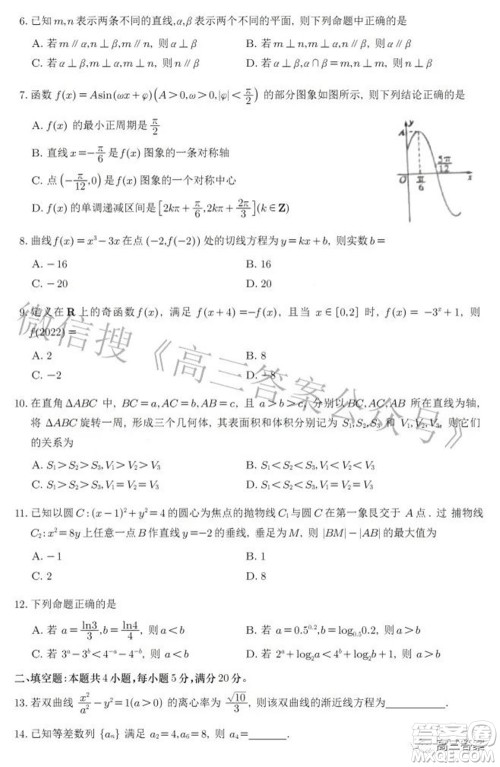 6. 已知m,n表示两条不同的直线,α,β表示两个不同的平面, 则下列命题中正确的是
A. 若m∥α,n⊥β,m∥n, 则α⊥β
B. 若m⊥n,m⊥α,n∥β, 则α∥β
C. 若α⊥β,m⊥α,m⊥n, 则n∥β
D. 若α⊥β,α∩β=m,n⊥m, 则n⊥β
7. 函数f(x)=Asin(ωx+φ)(A>0,ω>0,|φ|<π/2)的部分图象如图所示, 则下列结论正确的是
A. f(x)的最小正周期是π/2
B. 直线x=-π/6是f(x)图象的一条对称轴
C. 点(-π/12,0)是f(x)图象的一个对称中心
D. f(x)的单调递减区间是[2kπ+π/6,2kπ+2π/3](k∈Z)
y
A
5π/12
O
π/6
x
8. 曲线f(x)=x³-3x在点(-2,f(-2))处的切线方程为y=kx+b, 则实数b=
A. -16
B. 16
C. -20
D. 20
9. 定义在R上的奇函数f(x), 满足f(x+4)=-f(x), 且当x∈[0,2]时, f(x)=-3ˣ+1, 则
f(2022)=
A. 2
B. 8
C. -2
D. -8
10. 在直角ΔABC中, BC=a,AC=b,AB=c, 且a>b>c, 分别以BC,AC,AB所在直线为轴,
将ΔABC旋转一周, 形成三个几何体, 其表面积和体积分别记为S₁,S₂,S₃和V₁,V₂,V₃, 则它们
的关系为
A. S₁>S₂>S₃,V₁>V₂>V₃
B. S₁<S₂<S₃,V₁<V₂<V₃
C. S₁>S₂>S₃,V₁=V₂=V₃
D. S₁<S₂<S₃,V₁=V₂=V₃
11. 已知以圆C:(x-1)²+y²=4的圆心为焦点的抛物线C₁与圆C在第一象艮交于A点. 过抛物线
C₂:x²=8y上任意一点B作直线y=-2的垂线, 垂足为M, 则|BM|-|AB|的最大值为
A. -1
B. 1
C. 2
D. 8
12. 下列命题正确的是
A. 若a=ln3/3,b=ln4/4, 则a<b
B. 若a=0.5^0.2,b=log₀.₅0.2, 则a>b
C. 若3^a-3^b<4^-a-4^-b, 则a<b
D. 若2^a+log₂a<4^b+log₄b, 则a>2b
二、填空题:本题共4小题,每小题5分,满分20分。
13. 若双曲线x²/a²-y²=1(a>0)的离心率为√10/3, 则该双曲线的渐近线方程为________.
14. 已知等差数列{aₙ}满足a₂=4,a₆=8, 则a₄=______.
微信搜《高三答案公众号》
高三答案